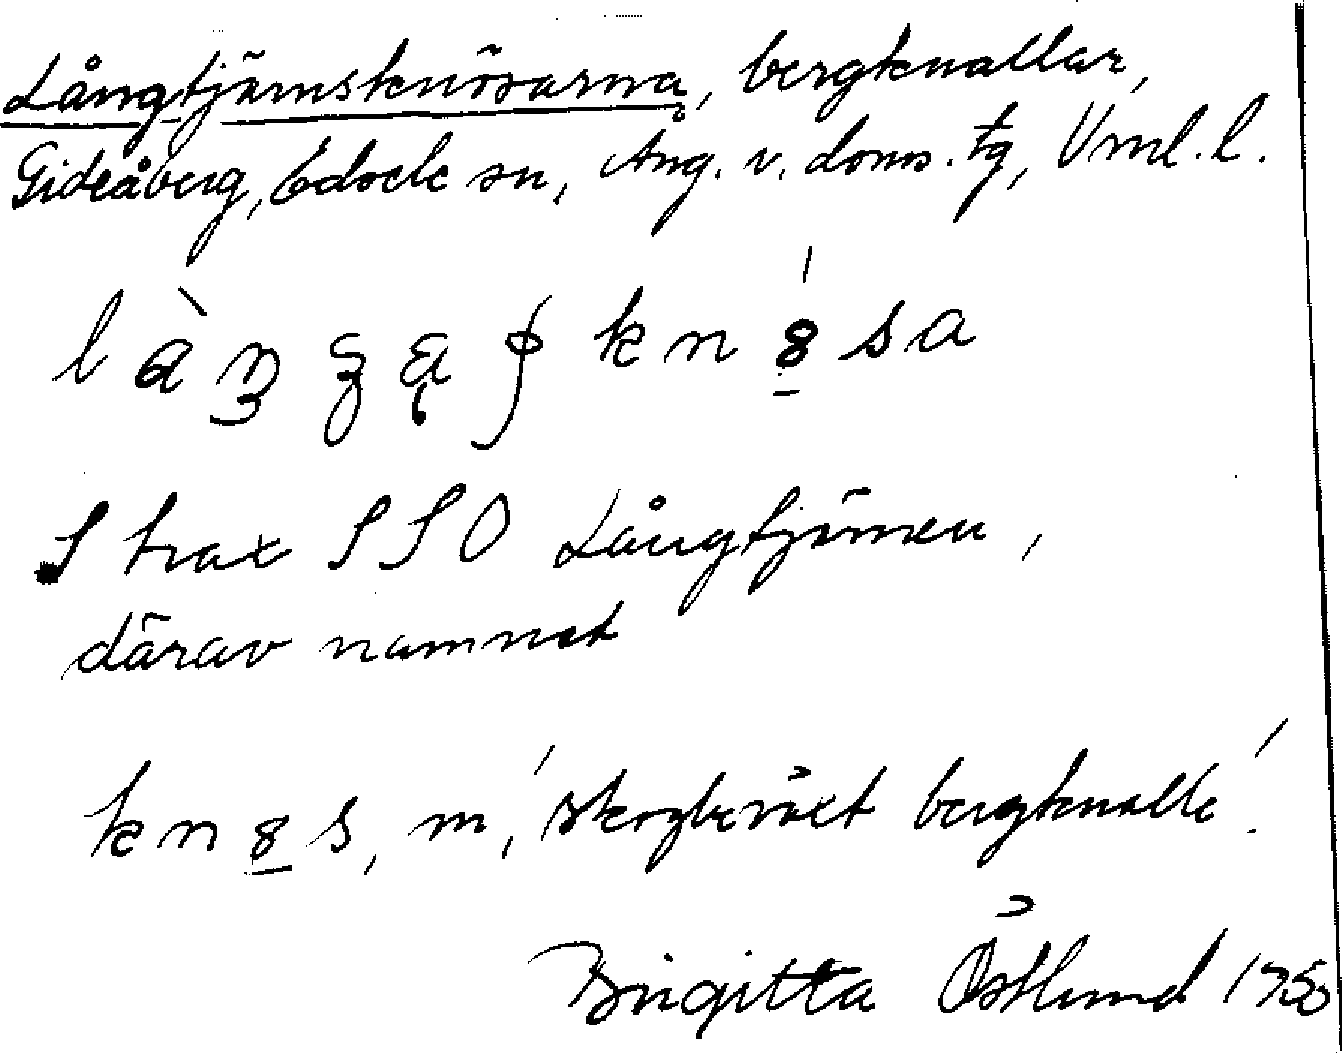 Långtjärnsknösarna, bergknallar,
Gideåberg, Edsele sn, Ång. v. doms. tg, Vml. l.
kn s a
Strax SSO Långtjärnen,
därav namnet
kn s, m, 'skogbeväxt bergknalle'.
Birgitta Östlund 1950